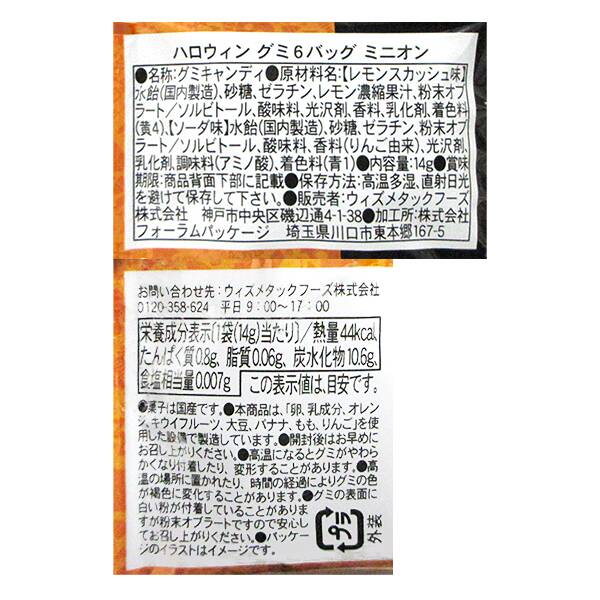 ハロウィン グミ6バッグ ミニオン
●名称:グミキャンディ●原材料名:【レモンスカッシュ味】
水飴(国内製造)、砂糖、ゼラチン、レモン濃縮果汁、粉末オブ
ラート/ソルビトール、酸味料、光沢剤、香料、乳化剤、着色料
(黄4)、【ソーダ味】水飴(国内製造)、砂糖、ゼラチン、粉末オブ
ラート/ソルビトール、酸味料、香料(りんご由来)、光沢剤、
乳化剤、調味料(アミノ酸)、着色料(青1)●内容量:14g●賞味
期限:商品背面下部に記載●保存方法:高温多湿、直射日光
を避けて保存して下さい。●販売者:ウィズメタックフーズ
株式会社 神戸市中央区磯辺通4-1-38●加工所:株式会社
フォーラムパッケージ 埼玉県川口市東本郷167-5
お問い合わせ先:ウィズメタックフーズ株式会社
0120-358-624 平日9:00～17:00
栄養成分表示〔1袋(14g)当たり〕/熱量44kcal、
たんぱく質0.8g、脂質0.06g、炭水化物10.6g、
食塩相当量0.007g この表示値は、目安です。
●菓子は国産です。●本商品は、「卵、乳成分、オレン
ジ、キウイフルーツ、大豆、バナナ、もも、りんご」を
使用した設備で製造しています。●開封後はお早めに
お召し上がりください。●高温になるとグミがやわら
かくなり付着したり、変形することがあります。●高
温の場所に置かれたり、時間の経過によりグミの色
が褐色に変化することがあります。●グミの表面に
白い粉が付着していることがありま
すが粉末オブラートですので安心し
てお召し上がりください。●パッケー
ジのイラストはイメージです。
プラ
外装